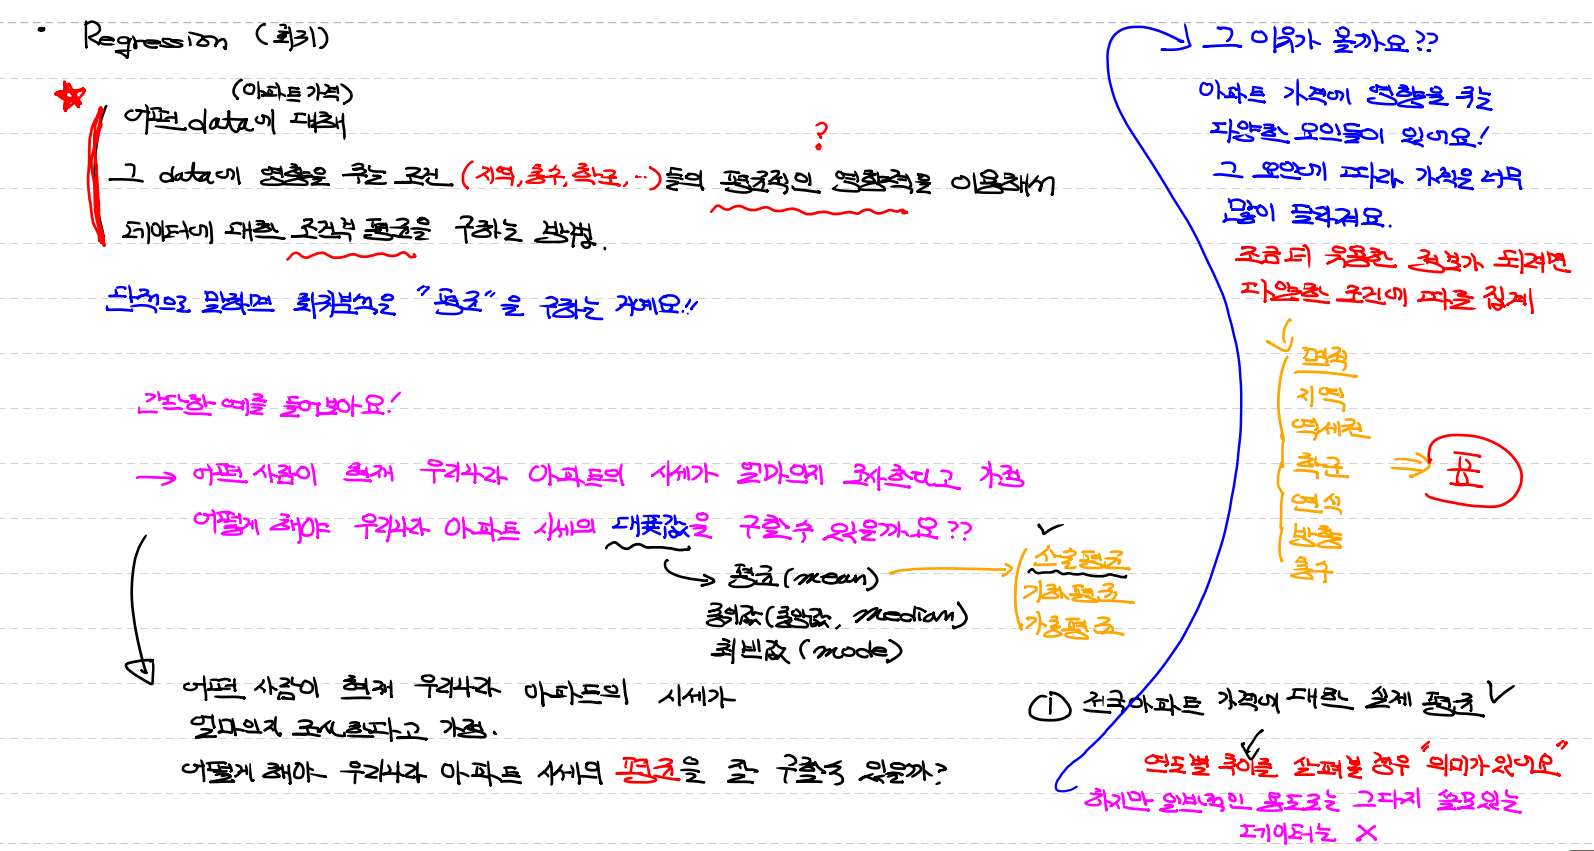 • Regression (회귀)
(아파트 가격)
어떤 data에 대해
?
그 data에 영향을 주는 조건 (지역, 층수, 학군, ...)들의 평균적인 영향력을 이용해서
데이터에 대한 조건부 평균을 구하는 방법.
단적으로 말하면 회귀분석은 "평균"을 구하는 거예요!!
간단한 예를 들어보아요!
→ 어떤 사람이 현재 우리나라 아파트의 시세가 얼마인지 조사한다고 가정
어떻게 해야 우리나라 아파트 시세의 대표값을 구할 수 있을까요??
평균(mean)
중위값(중앙값, median)
최빈값(mode)
산술평균
기하평균
가중평균
어떤 사람이 현재 우리나라 아파트의 시세가
얼마인지 조사한다고 가정.
어떻게 해야 우리나라 아파트 시세의 평균을 잘 구할 수 있을까?
① 전국아파트 가격에 대한 실제 평균
연도별 추이를 살펴볼 경우 "의미가 있어요"
하지만 일반적인 용도로는 그다지 쓸모있는
데이터는 X
그 이유가 뭘까요??
아파트 가격에 영향을 주는
다양한 요인들이 있어요!
그 요인에 따라 가격은 너무
많이 달라져요.
조금 더 유용한 정보가 되려면
다양한 조건에 따른 집계
면적
지역
역세권
학군
연식
방향
층수
⇒ 표